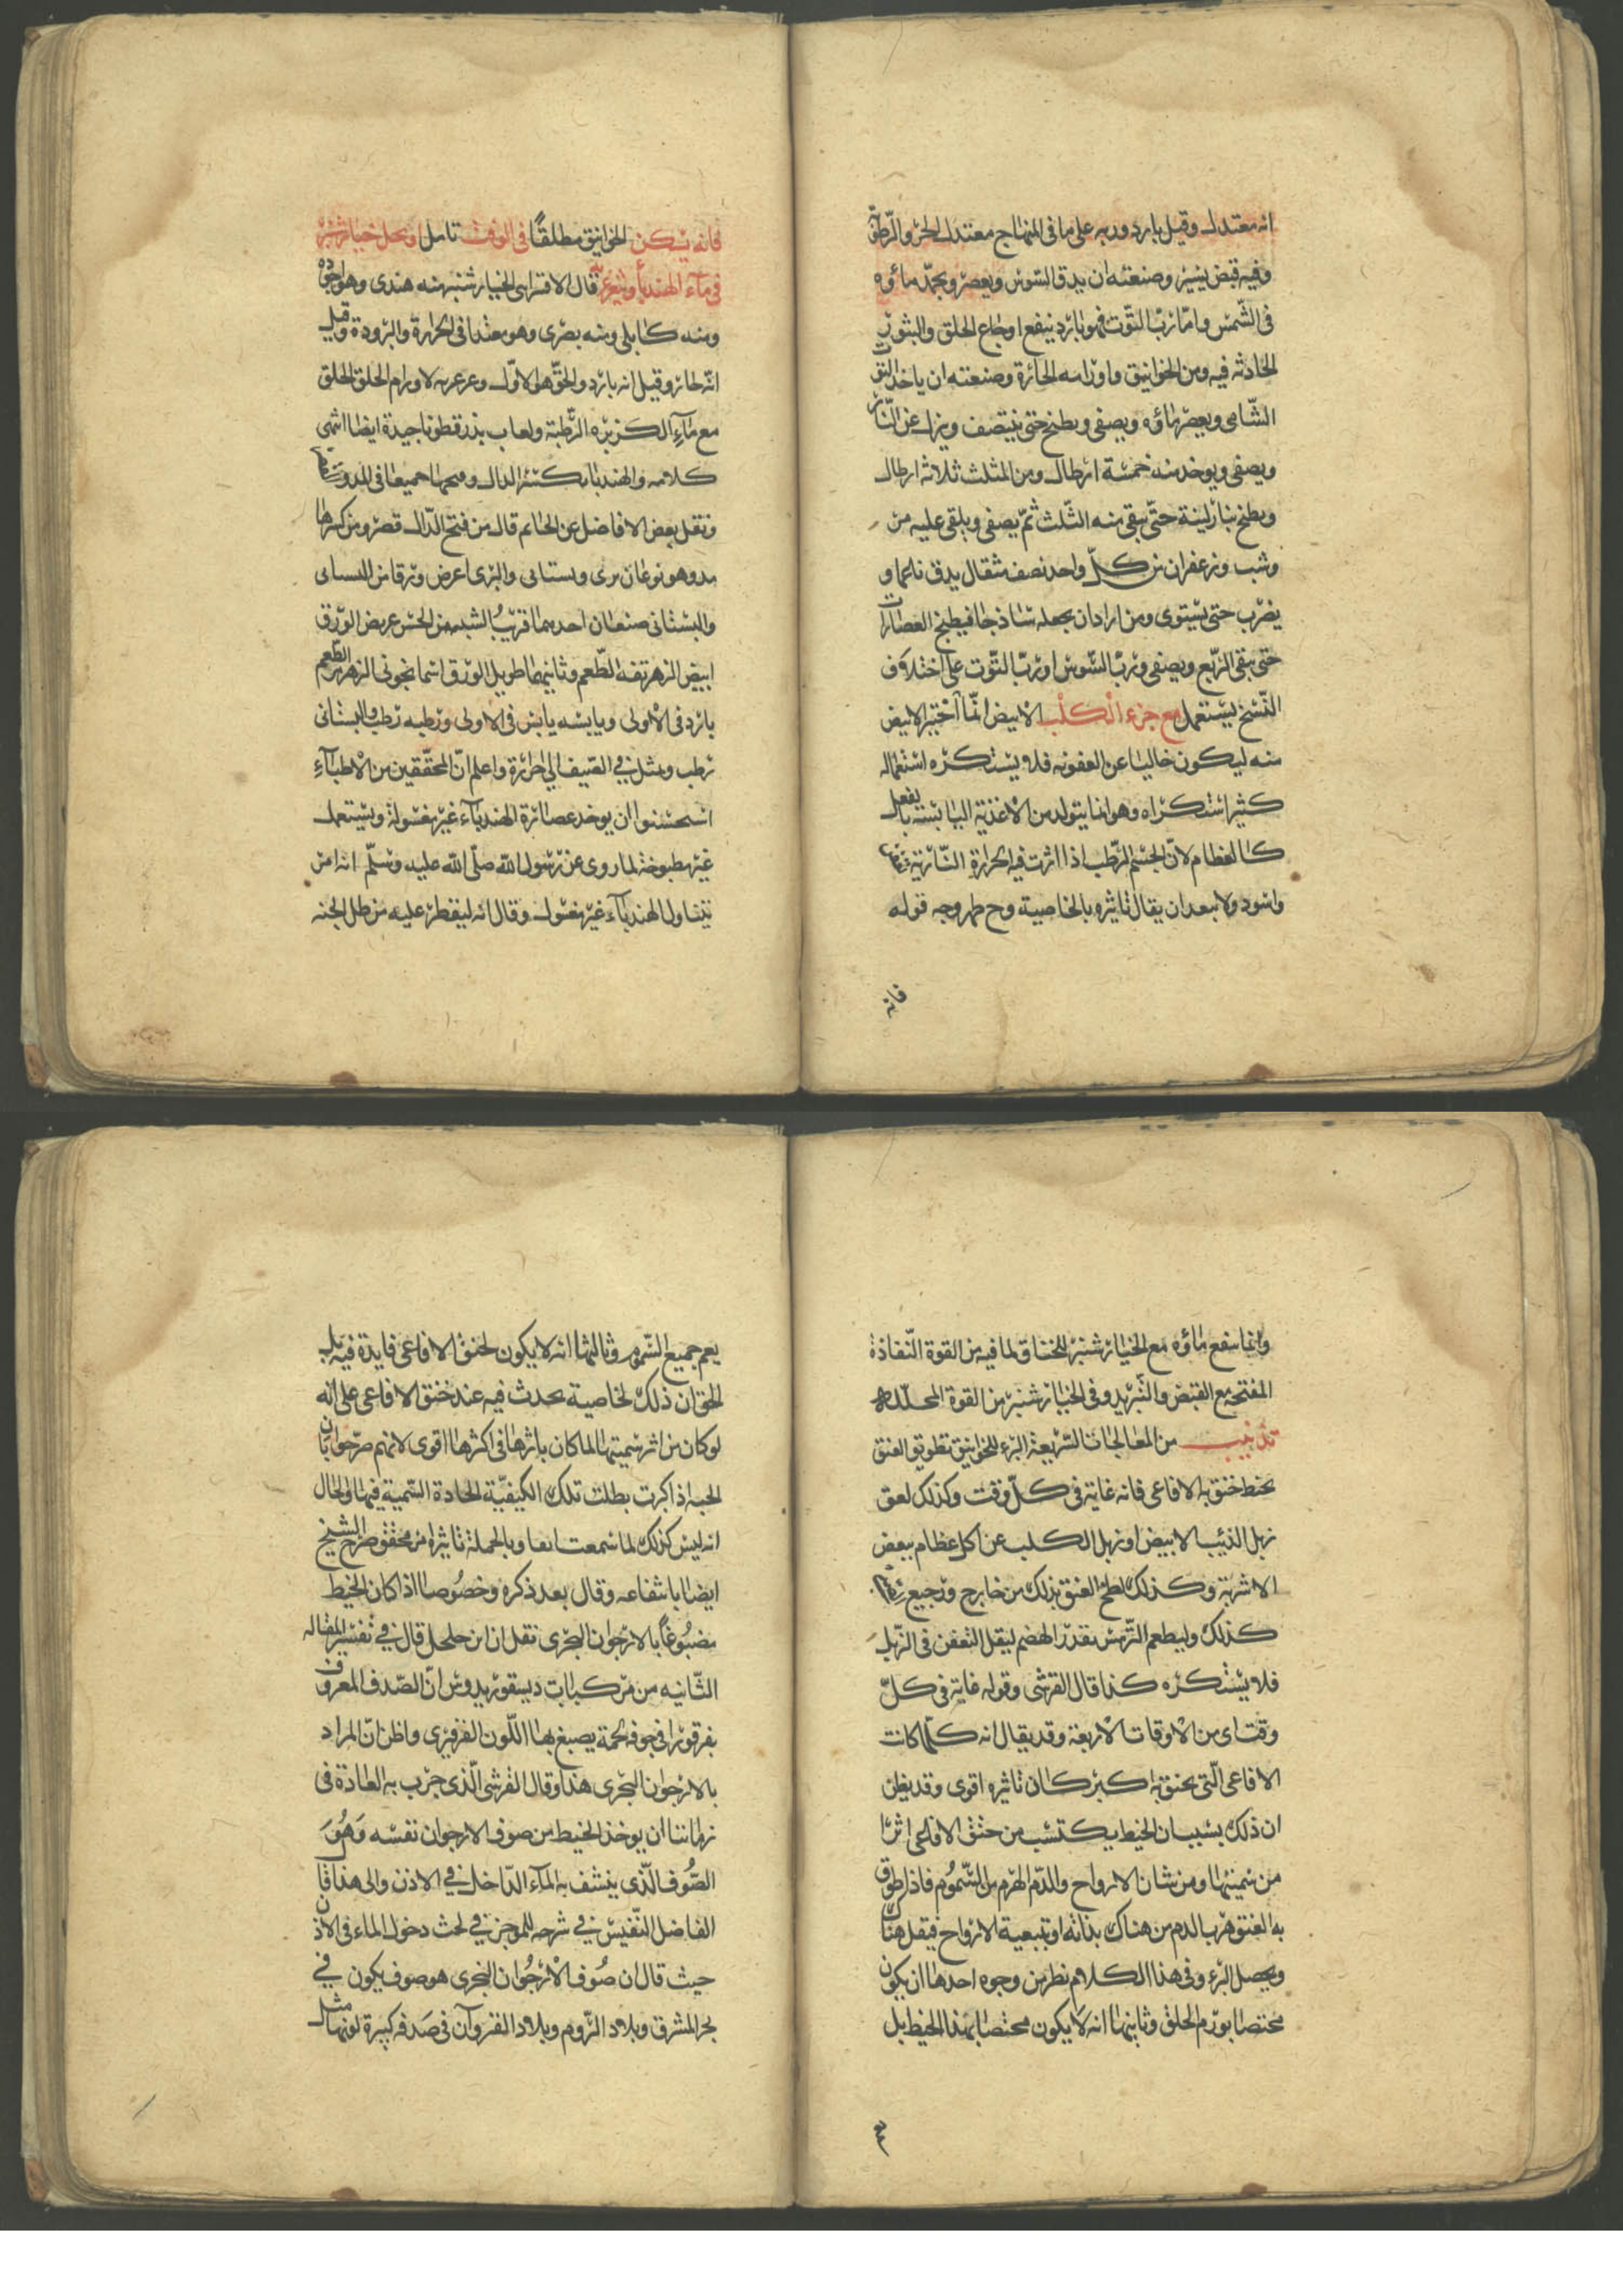 انه معتدل وقيل بارد وربه على ما فى المنهاج معتدل الحر والرطوبة
وفيه قبض يسير وصنعته ان يدق السوس ويعصر ويجمد ماؤه
فى الشمس واما رب التوت فهو بارد ينفع اوجاع الحلق والبثور
الحادثه فيه ومن الخوانيق واورامه الحارة وصنعته ان ياخذ التوت
الشامى ويعصر ماؤه ويصفى ويطبخ حتى ينتصف وينزل عن النار
ويصفى ويوخد منه خمسة ارطال ومن المثلث ثلاثه ارطال
ويطبخ بنار لينة حتى يبقى منه الثلث ثم يصفى ويلقى عليه من
وشب وزعفران من كل واحد نصف مثقال يدق ناعما و
يضرب حتى يستوى ومن اراد ان يجعله ساذجا فيطبخ العصارات
حتى يبقى الربع ويصفى ورب السوس او رب التوت على اختلاف
النسخ يستعمل مع جزء الكلب الابيض انما اختير الابيض
منه ليكون خاليا عن العفونه فلا يستكره استعماله
كثير استكراه وهو انما يتولد من الاغذية اليابسه بالفعل
كالعظام لان الجسم الرطب اذا اثرت فيه الحرارة النارية
واسود ولا يبعد ان يقال تاثيره بالخاصية وح ظهر وجه قوله
فانه
فانه يسكن الخوانيق مطلقا فى الوقت تامل او يحل خيار شنبر
فى ماء الهندبا ويتغرغر به قال الاقسرايى الخيار شنبر منه هندى وهو اجوده
ومنه كابلى ومنه بصرى وهو معتدل فى الحرارة والبرودة وقيل
انه حار وقيل انه بارد والحق هو الاول وغرغرته لاورام الحلق الحلق
مع ماء الكزبره الرطبة ولعاب بذر قطونا جيدة ايضا انتهى
كلامه والهندبا بكسر الدال وفتحها جميعا فى المد
ونقل بعض الافاضل عن الحاتم قال من فتح الدال قصر ومن كسرها
مد وهو نوعان برى وبستانى والبرى اعرض ورقا من البستانى
والبستانى صنفان احدهما قريب الشبه من الخس عريض الورق
ابيض الزهر تفه الطعم وثانيهما طويل الورق اسمانجونى الزهر مر الطعم
بارد فى الاولى ويابسه يابس فى الاولى ورطبه رطب والبستانى
رطب ويميل فى الصيف الى حرارة واعلم ان المحققين من الاطباء
استحسنوا ان يوخد عصارة الهندباء غير مغسولة ويستعمل
غير مطبوخه لما روى عن رسول الله صلى الله عليه وسلم انه امر
بتناول الهندباء غير مغسول وقال انه ليقطر عليه من طل الجنه
وانما ينفع ماؤه مع الخيار شنبر للخناق لما فيه من القوة النفاذة
المفتحه مع القبض والتبريد وفى الخيار شنبر من القوة المحلله
تذنيب من المعالجات السريعة البرء للخوانيق تطويق العنق
بخيط خنق به الافاعى فانه غاية فى كل وقت وكذلك لعق
زبل الذئب الابيض او زبل الكلب عن اكل عظام ببعض
الاشربة وكذلك لطخ العنق بذلك من خارج ورجيع
كذلك وليطعم الترمس بقدر الهضم ليقل التعفن فى الزبل
فلا يستكره كذا قال القرشى وقوله غاية فى كل
وقت اى من الاوقات الاربعة وقد يقال انه كلما كانت
الافاعى التى يخنق به اكبر كان تاثيره اقوى وقد يظن
ان ذلك بسبب ان الخيط يكتسب من خنق الافاعى اثرا
من سميتها ومن شان الارواح والدم الهرم من السموم فاذا طوق
به العنق هرب الدم من هناك بذاته او بتبعية الارواح فيقل هناك
ويحصل البرء وفى هذا الكلام نظر من وجوه احدها ان يكون
مختصا بورم الحلق وثانيها انه لا يكون مختصا بهذا الخيط بل
يعم جميع السموم وثالثها انه لا يكون لخنق الافاعى فايدة فيه بل
الحق ان ذلك لخاصية يحدث فيه عند خنق الافاعى على انه
لو كان من اثر سميتها لما كان تاثرها فى اكثرها اقوى لانهم صرحوا بان
الحيه اذا كبرت بطلت تلك الكيفية الحادة السمية فيها والحال
انه ليس كذلك لما سمعت انفا وبالجملة تاثيره امر محقق صرح الشيخ
ايضا بانتفاعه وقال بعد ذكره وخصوصا اذا كان الخيط
مصبوغا بالارجوان البحرى نقل ان ابن جلجل قال فى تفسير المقاله
الثانيه من مركبات ديسقوريدوس ان الصدف المعروف
بفرفورا فى جوفه لحمة يصبغ بها اللون الفرفيرى واظن ان المراد
بالارجوان البحرى هذا وقال القرشى الذى جرب به العادة فى
زماننا ان يوخذ الخيط من صوف الارجوان نفسه وهو
الصوف الذى ينشف به الماء الداخل فى الاذن والى هذا قال
الفاضل النفيس فى شرحه للموجز فى بحث دخول الماء فى الاذن
حيث قال ان صوف الارجوان البحرى هو صوف يكون فى
بحر المشرق وبلاد الروم وبلاد القروان فى صدفه كبيرة لونها مثل